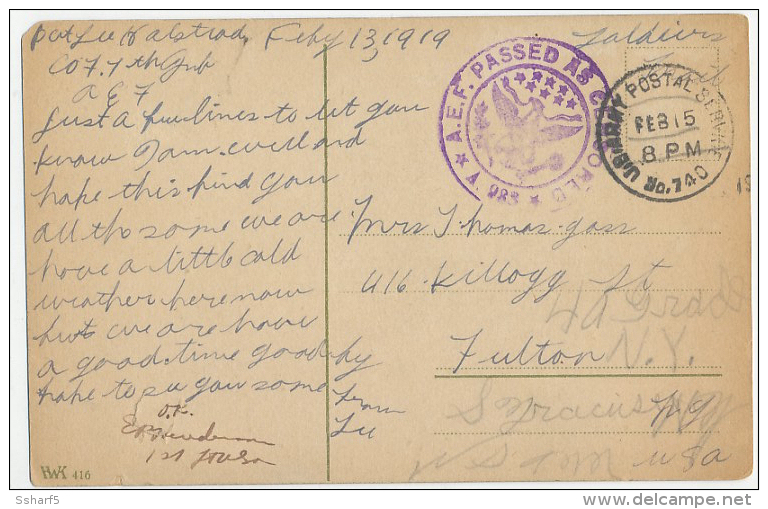 Pvt Lee Halstrad, Feby 13, 1919
Co 7. 7th Inf
A E F
Just a few lines to let you
know I am well and
hope this find you
all the same we are
have a little cold
weather here now
but we are have
a good time good by
hope to see you some
from
Lee
O.K.
1st
Soldiers
Mail
A.E.F. PASSED AS CENSORED
A. 983
U.S. ARMY POSTAL SERVICE
FEB 15
8 PM
No. 740
Mrs Thomas Goss
416 Killogg St
Fulton N.Y.
Syracuse N.Y.
N.Y.
U S A
HWK 416
Ssharf5
delcampe.net